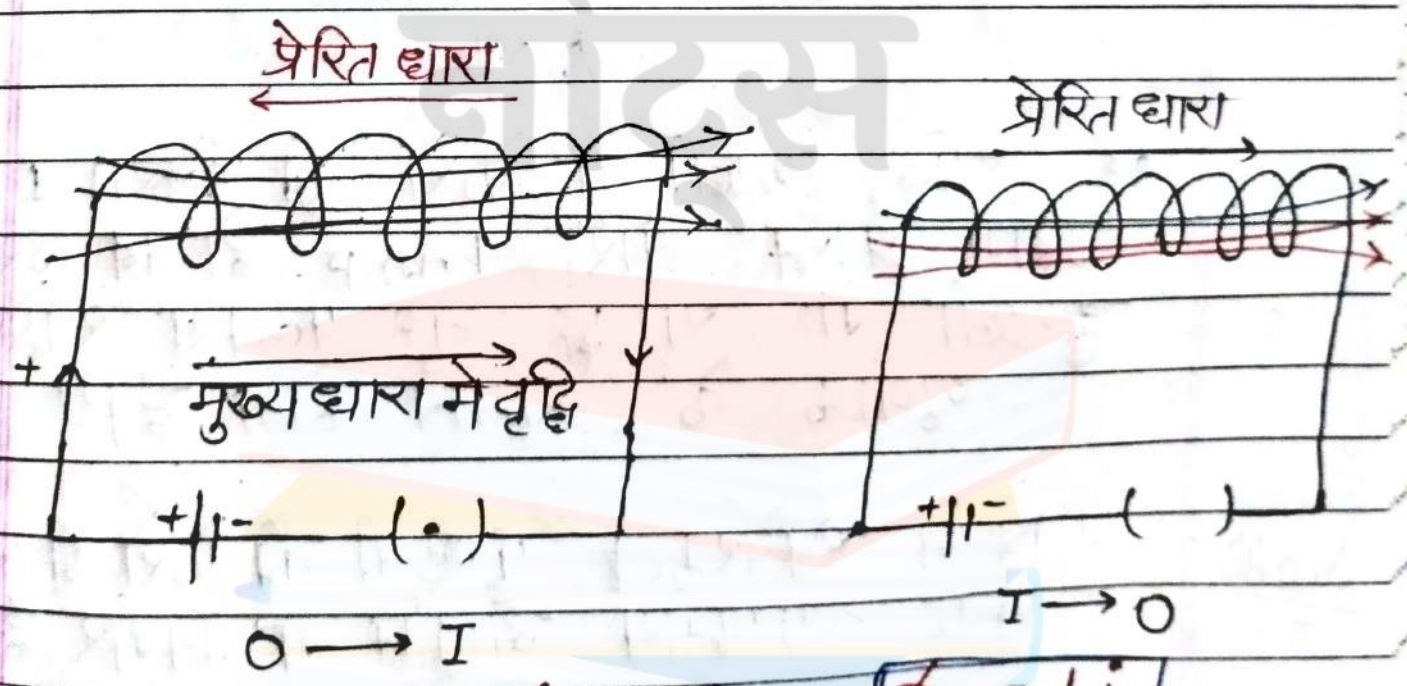 नोट्स
प्रेरित धारा
प्रेरित धारा
+
मुख्य धारा में वृद्धि
+ - (•)
+ - ( )
O → I
I → O